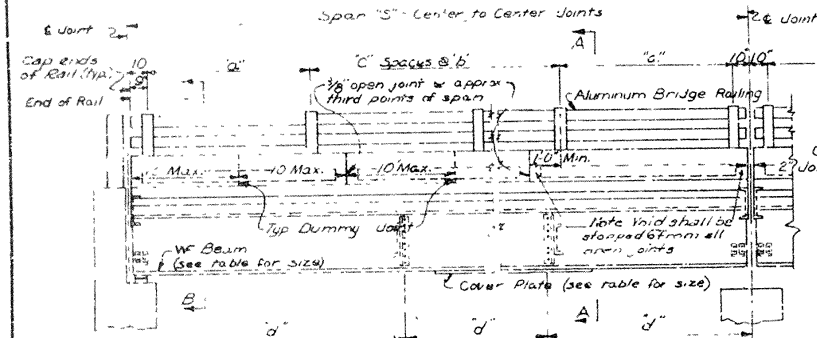 Span "S" - Center to Center Joints
¢ Joint
2
A
2 ¢ Joint
Cap ends
of Rail (typ.)
10
9"
"a"
"C" Spaces @ 'b'
"a"
10" 10"
3/8" open joint @ approx
third points of span
End of Rail
Aluminum Bridge Railing
Max.
10 Max.
10 Max.
1'-0" Min.
2"
Typ Dummy Joint
Note Void shall be
stopped 6" from all
open joints
WF Beam
(see table for size)
Cover Plate (see table for size)
B
A
"d"
"d"
"d"